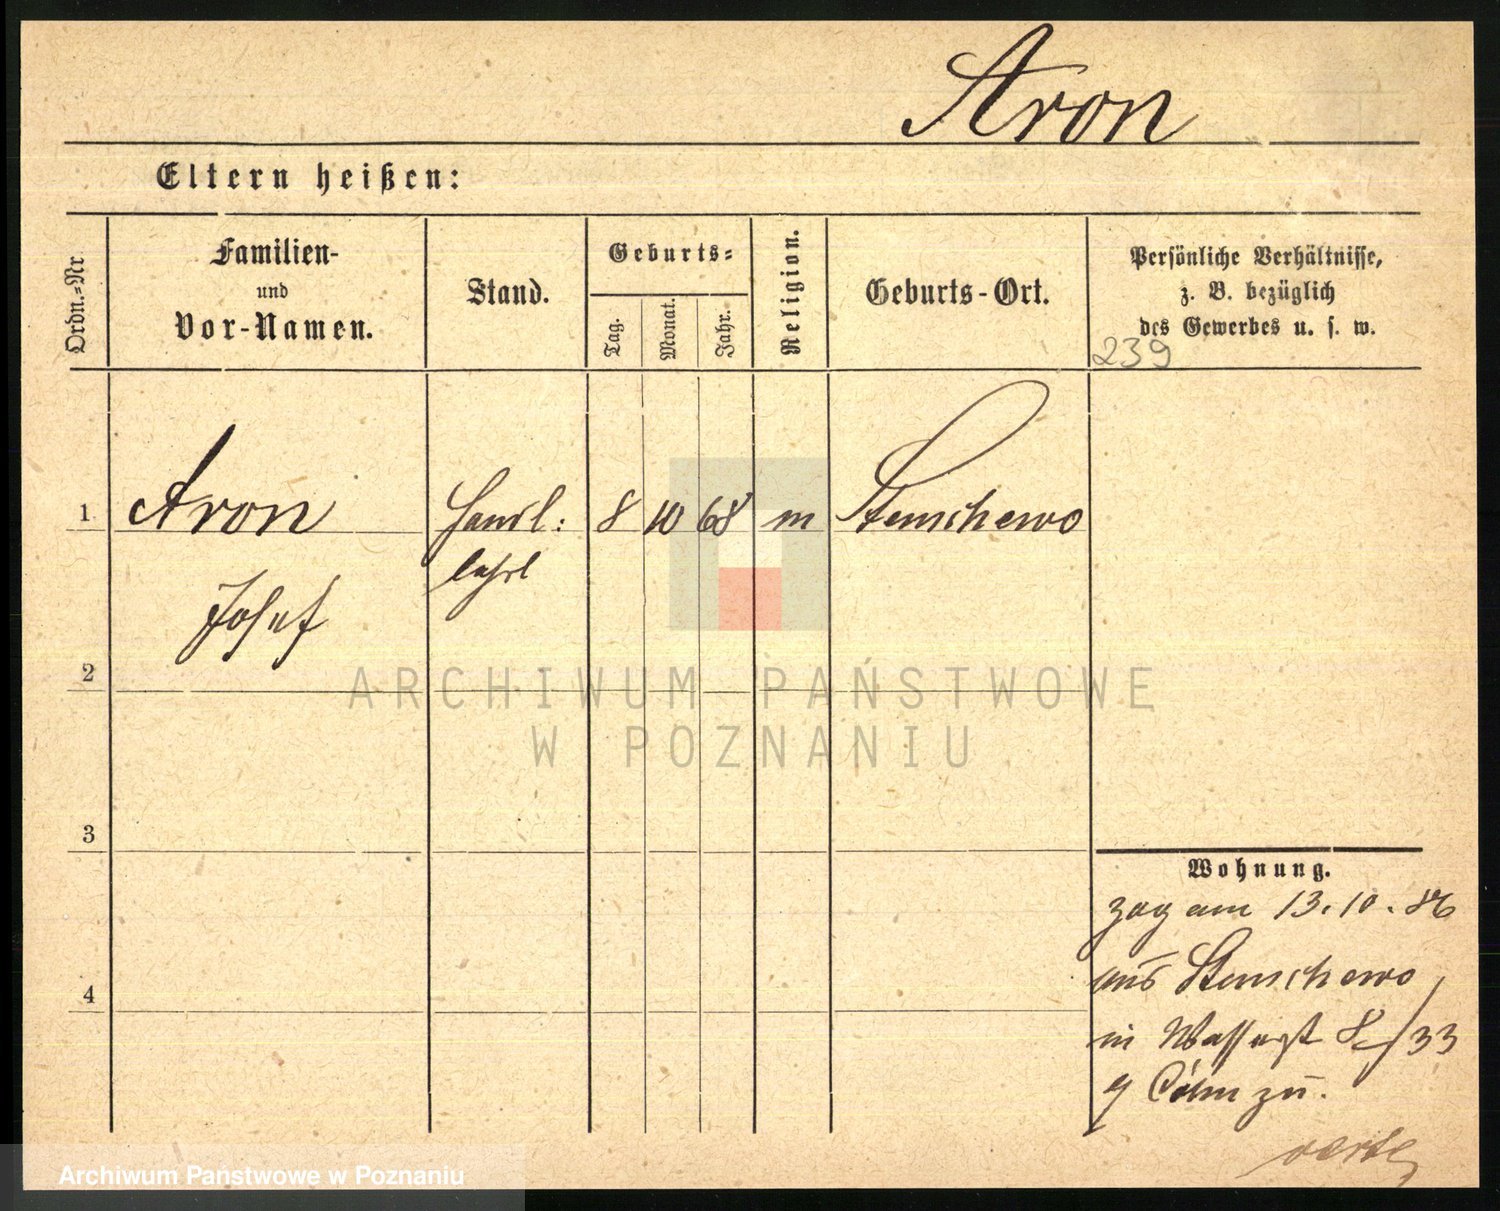 Aron
Eltern heißen:
Ordn.-Nr
Familien-
und
Vor-Namen.
Stand.
Geburts-
Tag.
Monat.
Jahr.
Religion.
Geburts-Ort.
Persönliche Verhältnisse,
z. B. bezüglich
des Gewerbes u. s. w.
239
1 Aron Handl: 8 10 68 m Stenschewo
lehrl
Josef
2
ARCHIWUM PAŃSTWOWE
W POZNANIU
3
Wohnung.
zog am 13.10.86
aus Stenschewo
4
in Wasserst 8/33
zu.
Archiwum Państwowe w Poznaniu